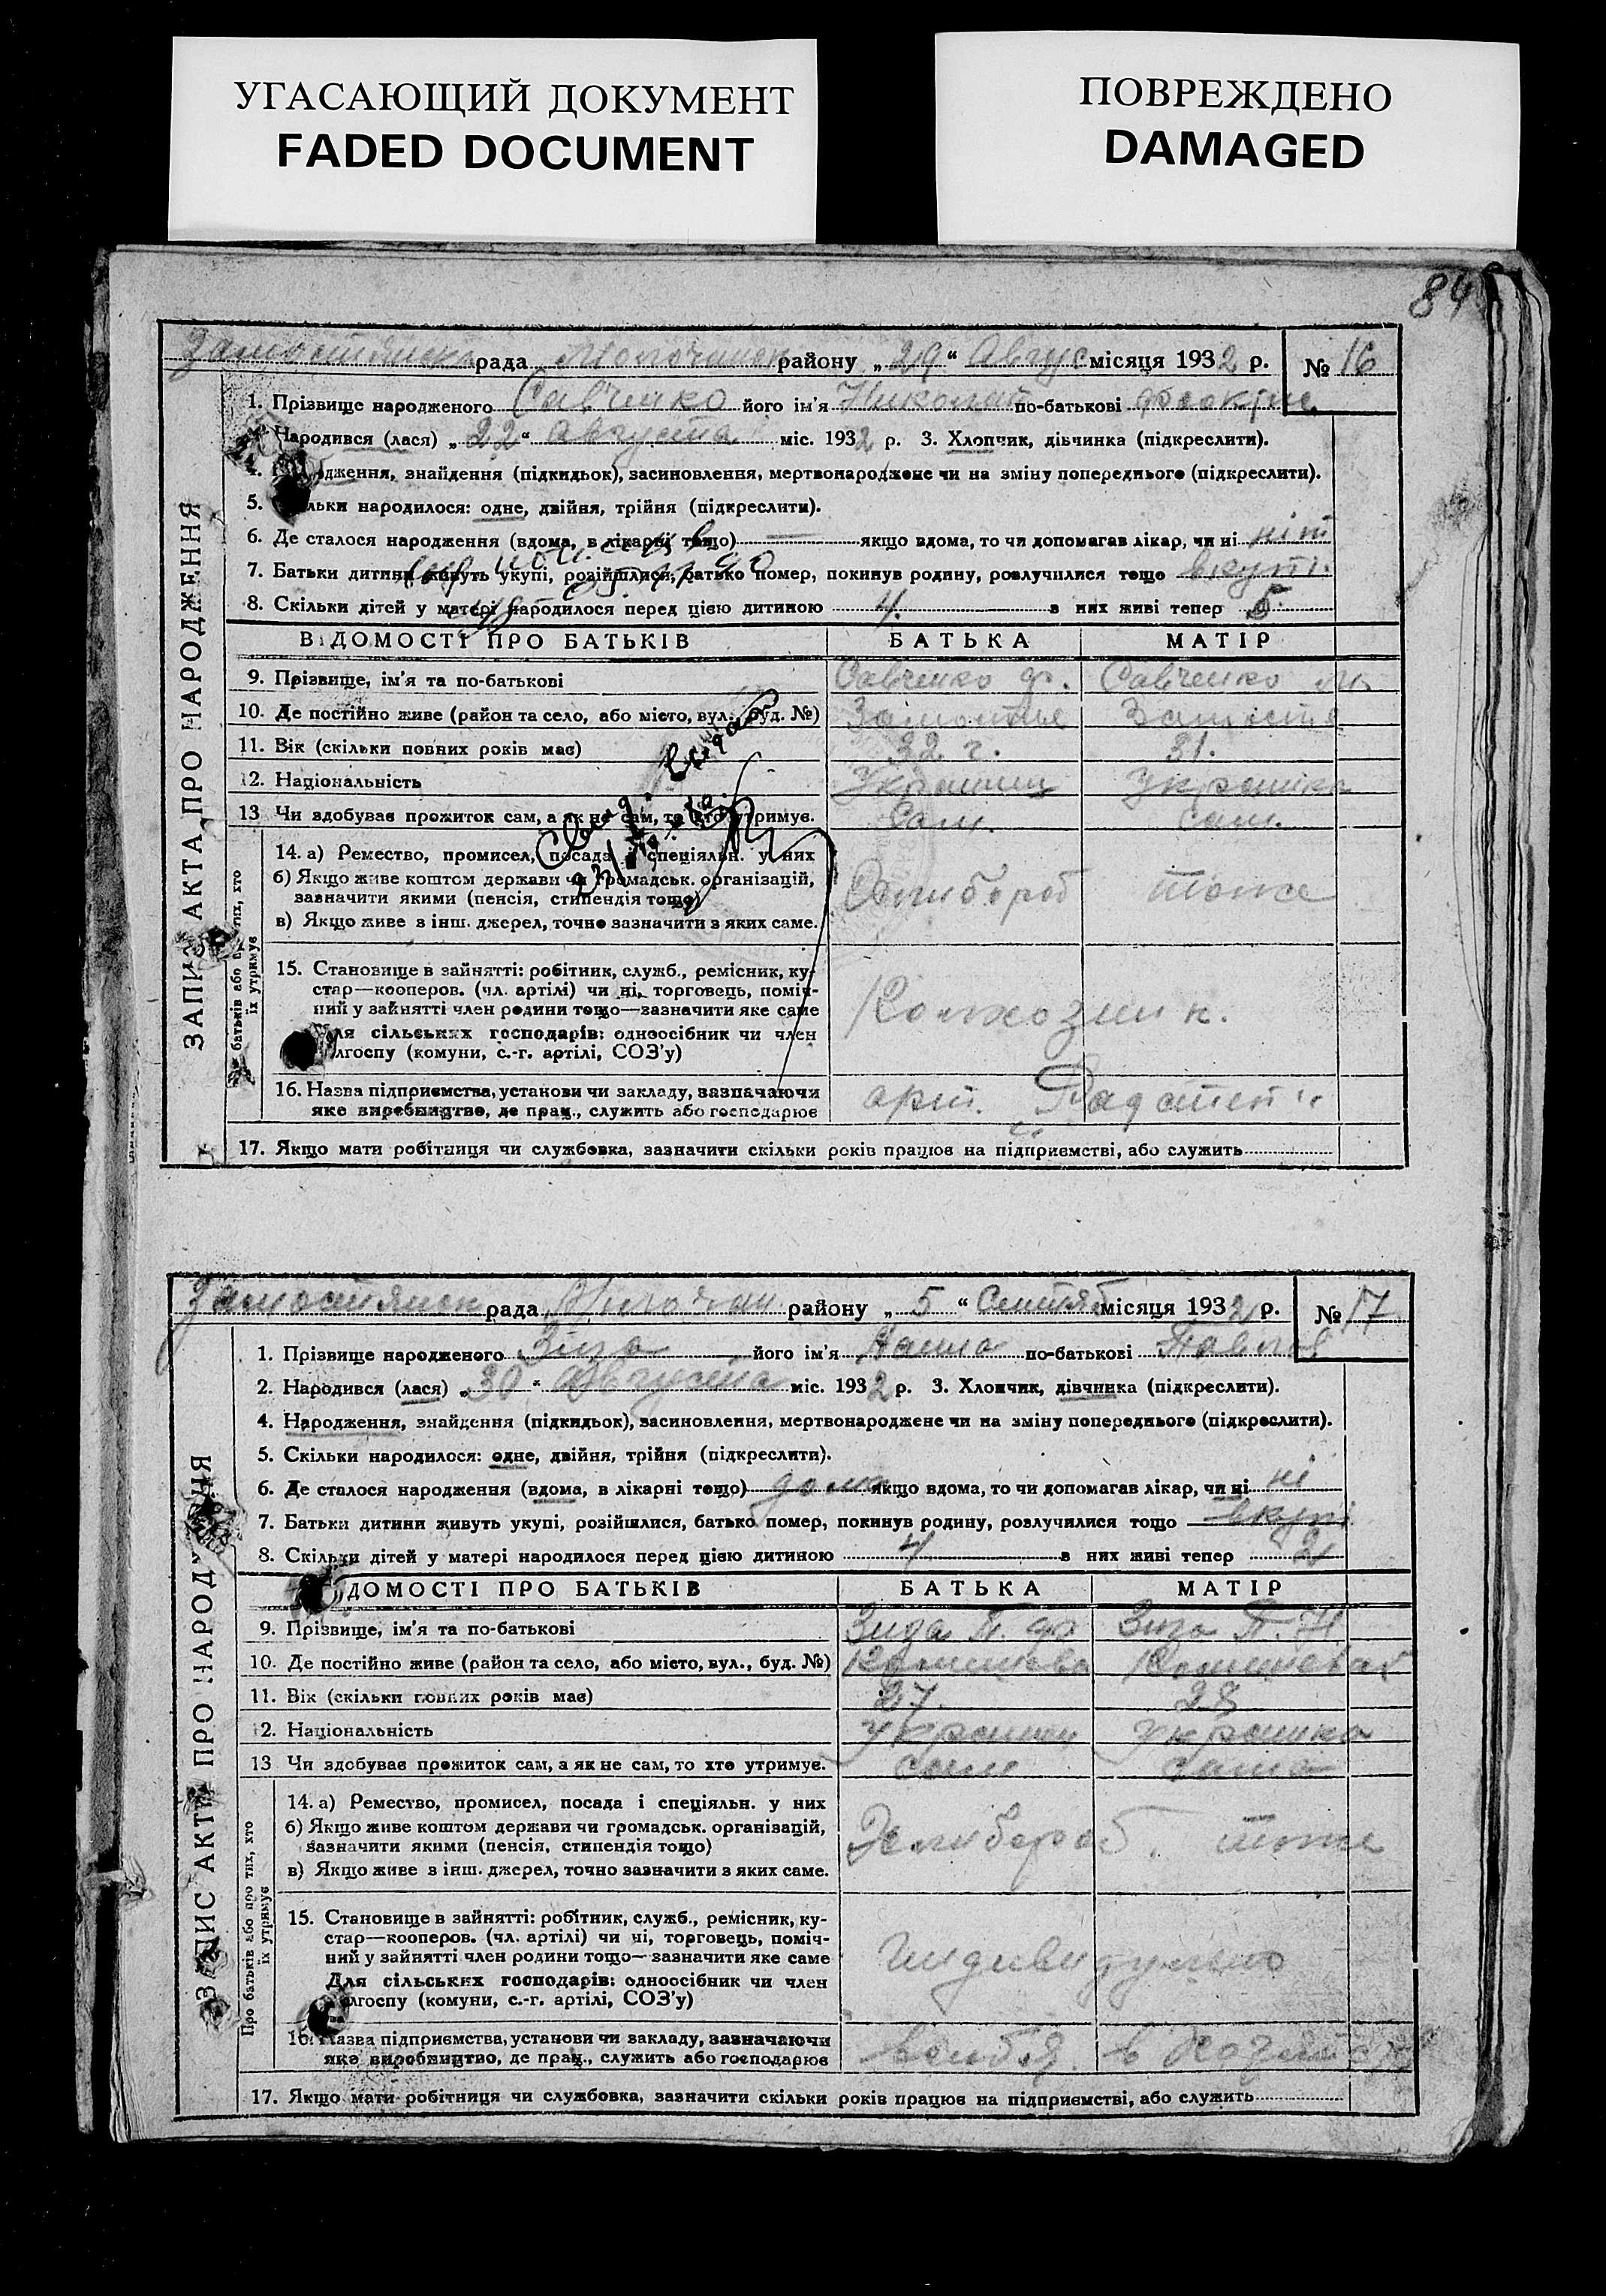 УГАСАЮЩИЙ ДОКУМЕНТ
FADED DOCUMENT
ПОВРЕЖДЕНО
DAMAGED
84
рада району „29“ Август місяця 1932 р. № 16
1. Прізвище народженого Савченко його ім'я Николай по-батькові
Народився (лася) „22“ Августа міс. 1932 р. 3. Хлопчик, дівчинка (підкреслити).
4. знайдення (підкидьок), засиновлення, мертвонароджене чи на зміну попереднього (підкреслити).
5. народилося: одне, двійня, трійня (підкреслити).
6. Де сталося народження (вдома, в лікарні тощо) — якщо вдома, то чи допомагав лікар, чи ні ніт
7. Батьки дитини живуть укупі, розійшлися, батько помер, покинув родину, розлучилися тощо вкупі
8. Скільки дітей у матері народилося перед цією дитиною 4. з них живі тепер 5
ВІДОМОСТІ ПРО БАТЬКІВ БАТЬКА МАТІР
9. Прізвище, ім'я та по-батькові Савченко Ф. Савченко М.
10. Де постійно живе (район та село, або місто, вул., буд. №) Замостье
11. Вік (скільки повних років має) 32 г. 31.
12. Національність
13 Чи здобуває прожиток сам, а як не сам, то хто утримує. Сам. сам.
ЗАПИС АКТА ПРО НАРОДЖЕННЯ
батьків або тих, хто
їх утримує
14. а) Ремество, промисел, посада і спеціяльн. у них
б) Якщо живе коштом держави чи громадськ. організацій,
зазначити якими (пенсія, стипендія тощо)
в) Якщо живе з інш. джерел, точно зазначити з яких саме.
тоже
15. Становище в зайнятті: робітник, служб., ремісник, ку-
стар—кооперов. (чл. артілі) чи ні, торговець, поміч-
ний у зайнятті член родини тощо—зазначити яке саме
Для сільських господарів: одноосібник чи член
лгоспу (комуни, с.-г. артілі, СОЗ'у)
Колхозник.
16. Назва підприємства, установи чи закладу, зазначаючи
яке виробництво, де прац., служить або господарює
арт.
17. Якщо мати робітниця чи службовка, зазначити скільки років працює на підприємстві, або служить
рада району „5“ Сентяб місяця 1932 р. № 17
1. Прізвище народженого Зиза його ім'я Ганна по-батькові Павлов
2. Народився (лася) „30“ Августа міс. 1932 р. 3. Хлопчик, дівчинка (підкреслити).
4. Народження, знайдення (підкидьок), засиновлення, мертвонароджене чи на зміну попереднього (підкреслити).
5. Скільки народилося: одне, двійня, трійня (підкреслити).
6. Де сталося народження (вдома, в лікарні тощо) дома якщо вдома, то чи допомагав лікар, чи ні ні
7. Батьки дитини живуть укупі, розійшлися, батько помер, покинув родину, розлучилися тощо вкупі
8. Скільки дітей у матері народилося перед цією дитиною 4 з них живі тепер 2
ДОМОСТІ ПРО БАТЬКІВ БАТЬКА МАТІР
9. Прізвище, ім'я та по-батькові Зиза П. Ф. Зиза П. Н
10. Де постійно живе (район та село, або місто, вул., буд. №)
11. Вік (скільки повних років має) 27. 28
12. Національність
13 Чи здобуває прожиток сам, а як не сам, то хто утримує. сам сама
ЗАПИС АКТА ПРО НАРОД НЯ
Про батьків або про тих, хто
їх утримує
14. а) Ремество, промисел, посада і спеціяльн. у них
б) Якщо живе коштом держави чи громадськ. організацій,
зазначити якими (пенсія, стипендія тощо)
в) Якщо живе з інш. джерел, точно зазначити з яких саме.
тоже
15. Становище в зайнятті: робітник, служб., ремісник, ку-
стар—кооперов. (чл. артілі) чи ні, торговець, поміч-
ний у зайнятті член родини тощо—зазначити яке саме
Для сільських господарів: одноосібник чи член
лгоспу (комуни, с.-г. артілі, СОЗ'у)
16. Назва підприємства, установи чи закладу, зазначаючи
яке виробництво, де прац., служить або господарює
17. Якщо мати робітниця чи службовка, зазначити скільки років працює на підприємстві, або служить